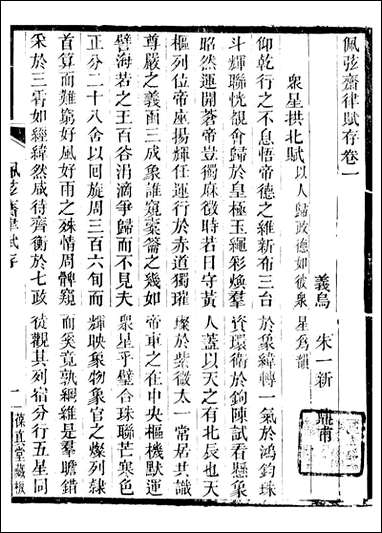 佩弦齋律賦存卷一
義烏 朱一新 鼎甫
眾星拱北賦以人歸政德如彼眾星為韻
仰乾行之不息悟帝德之維新布三台於象緯轉一氣於鴻鈞珠
斗輝聯恍覩會歸於皇極玉繩彩煥羣資環衛於鉤陳試看懸象
昭然運開蒼帝豈獨庥徵時若日守黃人蓋以天之有北辰也天
樞列位帝座揚輝任運行於赤道獨璀璨於紫微太一常居共識
尊嚴之義函三成象誰窺橐籥之幾如帝車之在中央樞機默運
譬海若之王百谷涓滴爭歸而不見夫眾星乎璧合珠聯芒寒色
正分二十八舍以回旋周三百六旬而輝映象物象官之燦列隸
首算而難窮好風好雨之殊情周髀窺而奚竟孰綱維是羣瞻錯
采於三霄如經緯然咸待齊衡於七政徒觀其列宿分行五星同
佩弦齋律賦存 一 葆真堂藏板